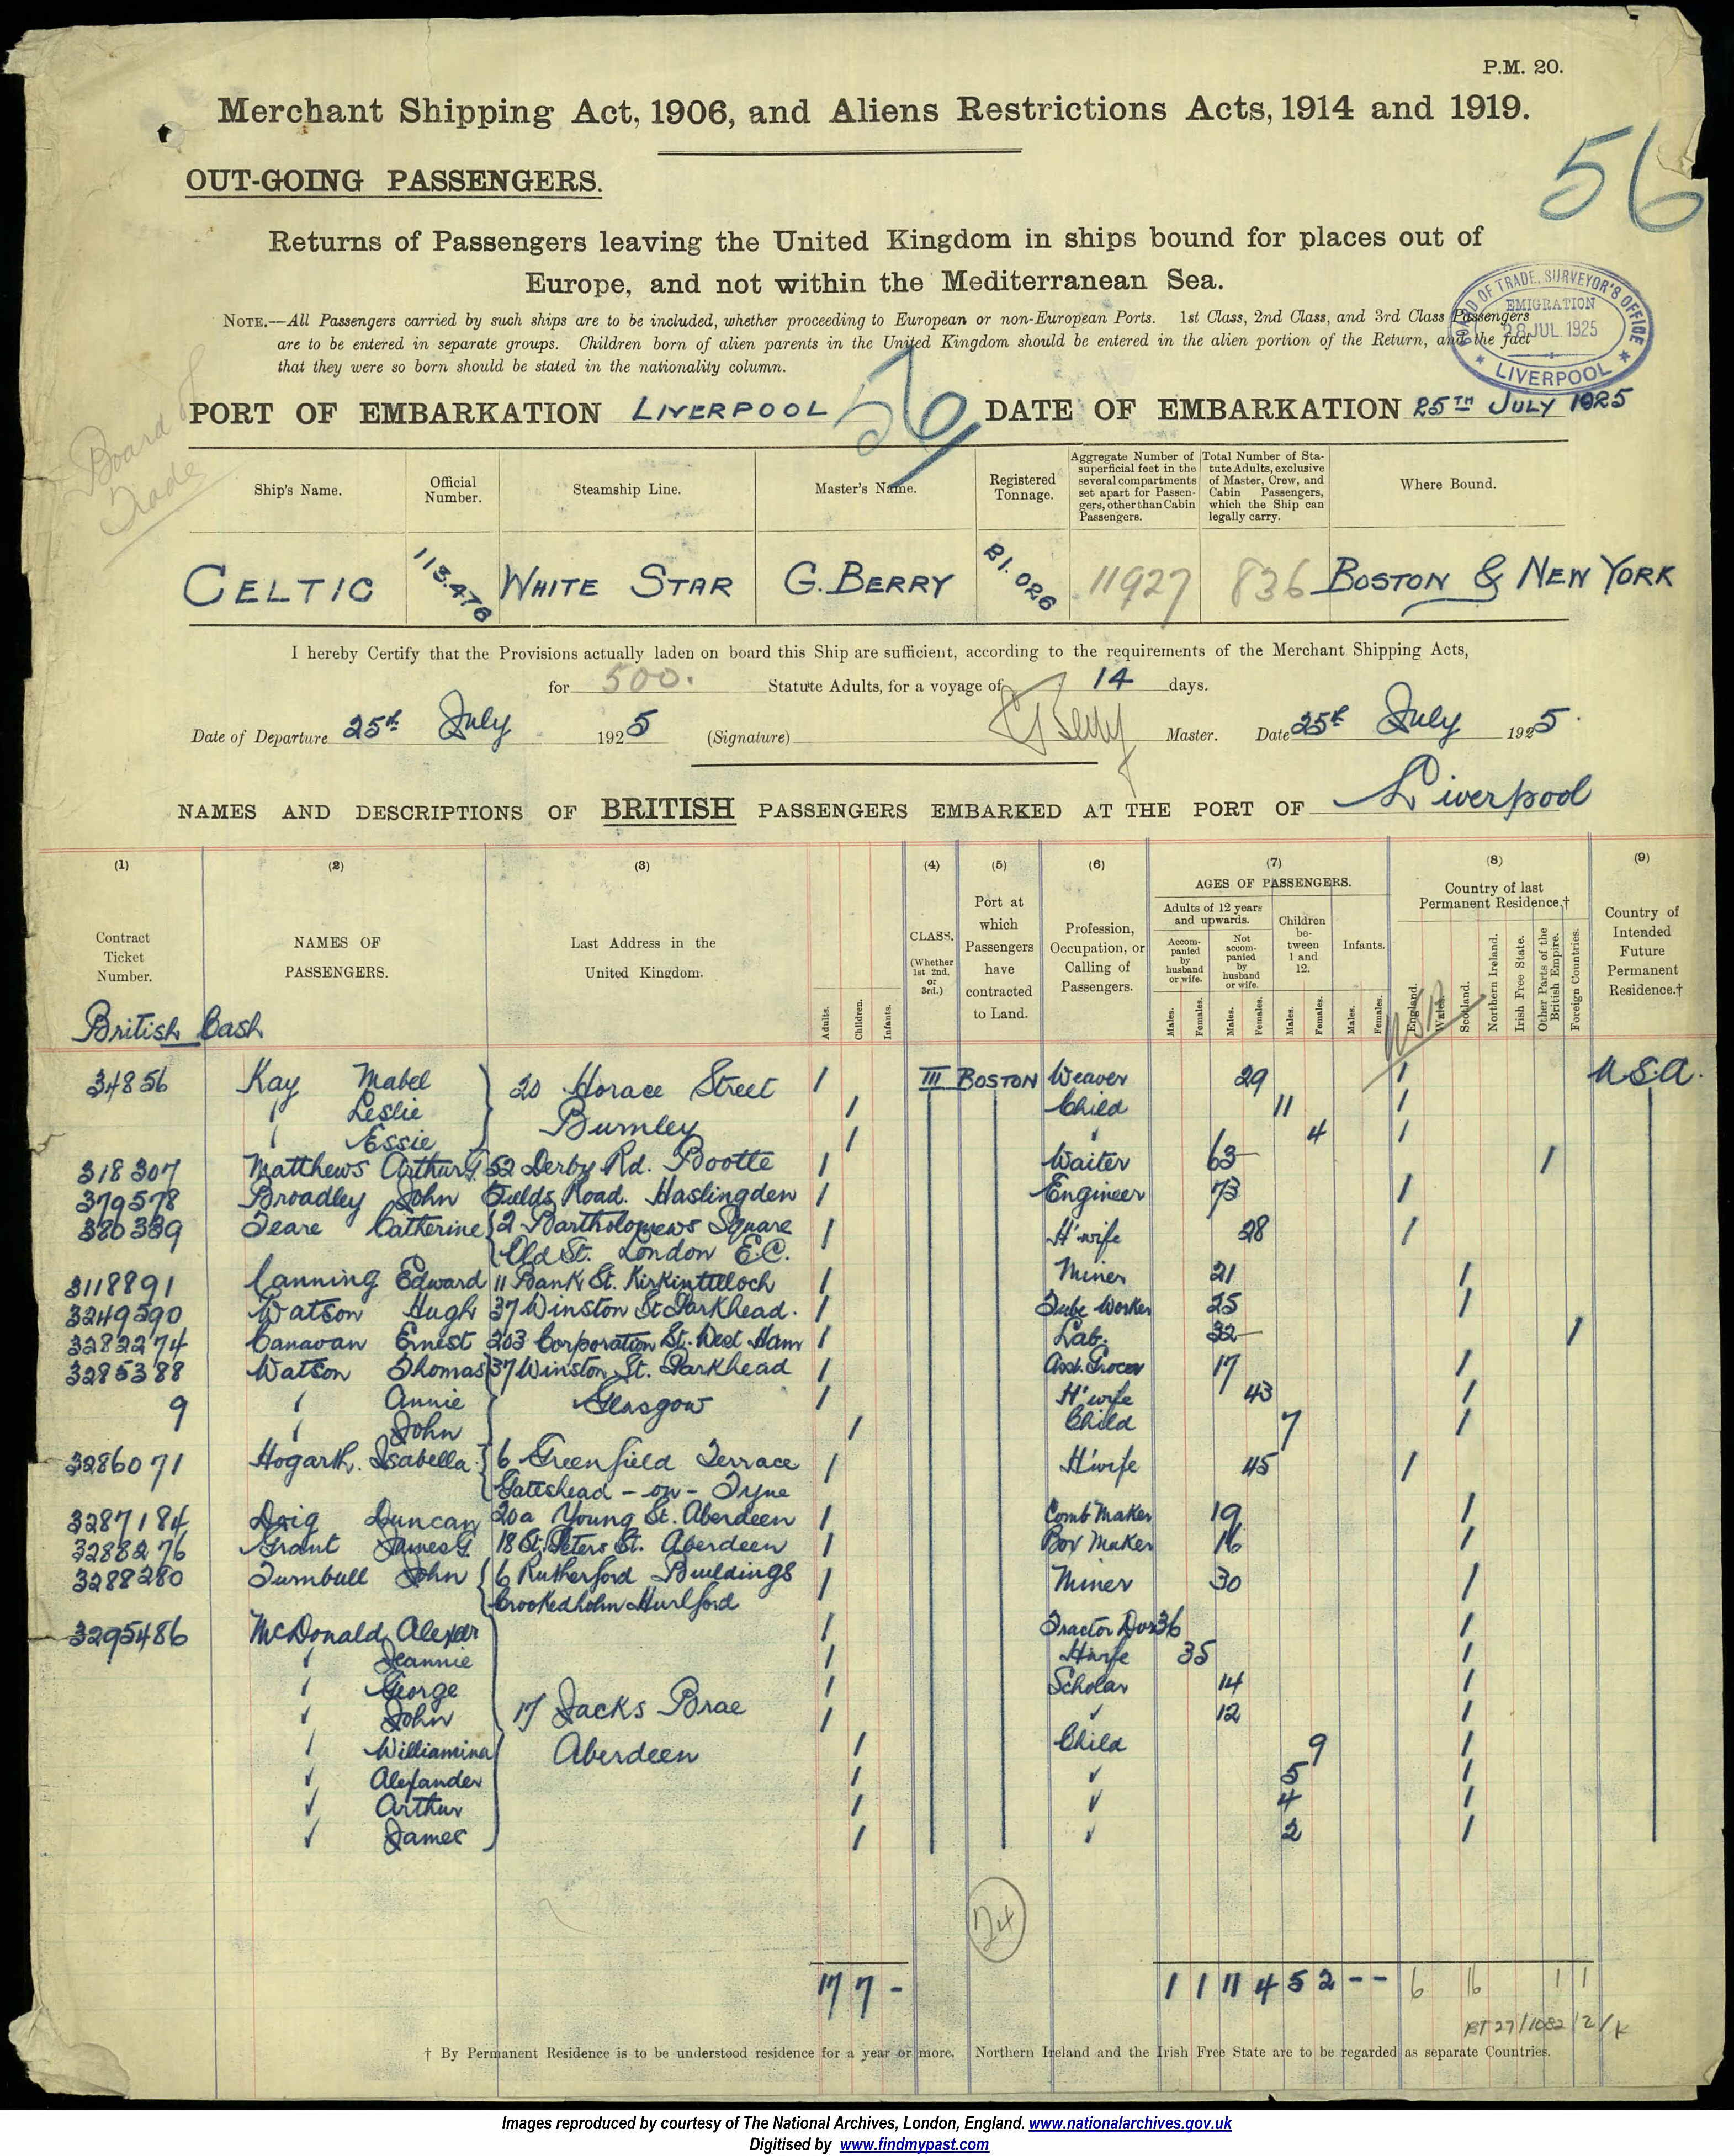 P.M. 20.
Merchant Shipping Act, 1906, and Aliens Restrictions Acts, 1914 and 1919.
56
OUT-GOING PASSENGERS.
Returns of Passengers leaving the United Kingdom in ships bound for places out of
Europe, and not within the Mediterranean Sea.
NOTE.—All Passengers carried by such ships are to be included, whether proceeding to European or non-European Ports. 1st Class, 2nd Class, and 3rd Class Passengers
are to be entered in separate groups. Children born of alien parents in the United Kingdom should be entered in the alien portion of the Return, and the fact
that they were so born should be stated in the nationality column.
BOARD OF TRADE, SURVEYOR'S OFFICE
EMIGRATION
28 JUL 1925
LIVERPOOL
Board of
Trade
PORT OF EMBARKATION LIVERPOOL 56 DATE OF EMBARKATION 25TH JULY 1925
Ship's Name. Official Number. Steamship Line. Master's Name. Registered Tonnage. Aggregate Number of superficial feet in the several compartments set apart for Passengers, other than Cabin Passengers. Total Number of Statute Adults, exclusive of Master, Crew, and Cabin Passengers, which the Ship can legally carry. Where Bound.
CELTIC 113.476 WHITE STAR G. BERRY 21.026 11927 836 BOSTON & NEW YORK
I hereby Certify that the Provisions actually laden on board this Ship are sufficient, according to the requirements of the Merchant Shipping Acts,
for 500. Statute Adults, for a voyage of 14 days.
Date of Departure 25th July 1925 (Signature) G Berry Master. Date 25th July 1925.
NAMES AND DESCRIPTIONS OF BRITISH PASSENGERS EMBARKED AT THE PORT OF Liverpool
(1) (2) (3) (4) (5) (6) (7) (8) (9)
Contract Ticket Number. NAMES OF PASSENGERS. Last Address in the United Kingdom. Adults. Children. Infants. CLASS. (Whether 1st 2nd, or 3rd.) Port at which Passengers have contracted to Land. Profession, Occupation, or Calling of Passengers.
AGES OF PASSENGERS. Adults of 12 years and upwards. Accompanied by husband or wife. Not accompanied by husband or wife. Children between 1 and 12. Infants. Males. Females. Males. Females. Males. Females. Males. Females.
Country of last Permanent Residence.† England. Wales. Scotland. Northern Ireland. Irish Free State. Other Parts of the British Empire. Foreign Countries. Country of Intended Future Permanent Residence.†
British Cash
34856 Kay Mabel 20 Horace Street 1 III BOSTON Weaver 29 1 U.S.A.
" Leslie Burnley 1 Child 11 1
" Essie 1 " 4 1
318307 Matthews Arthur G. 52 Derby Rd. Bootle 1 Waiter 63 1
379578 Broadley John Fields Road. Haslingden 1 Engineer 73 1
380339 Teare Catherine 2 Bartholomews Square 1 H'wife 28 1
Old St. London E.C.
3118891 Canning Edward 11 Bank St. Kirkintilloch 1 Miner 21 1
3249590 Watson Hugh 37 Winston St Parkhead. 1 Tube Worker 25 1
3282274 Canavan Ernest 203 Corporation St. West Ham 1 Lab. 32 1
3285388 Watson Thomas 37 Winston St. Parkhead 1 Asst. Grocer 17 1
9 " Annie Glasgow 1 H'wife 43 1
" John 1 Child 7 1
3286071 Hogarth. Isabella 6 Greenfield Terrace 1 H'wife 45 1
Gateshead - on - Tyne
3287184 Duncan 20a Young St. Aberdeen 1 Comb Maker 19 1
3288276 Grant James G. 18 St. Peters St. Aberdeen 1 Box Maker 16 1
3288280 Turnbull John 6 Rutherford Buildings 1 Miner 30 1
Crookedholm Hurlford
3295486 McDonald Alexr 1 Tractor Dvr 36 1
" Jeannie 1 H'wife 35 1
" George 1 Scholar 14 1
" John 17 Jacks Brae 1 " 12 1
" Williamina Aberdeen 1 Child 9 1
" Alexander 1 " 5 1
" Arthur 1 " 4 1
" James 1 " 2 1
24
17 7 - 1 1 11 4 5 2 - - 6 16 1 1
BT 27/1082/2/K
† By Permanent Residence is to be understood residence for a year or more. Northern Ireland and the Irish Free State are to be regarded as separate Countries.
Images reproduced by courtesy of The National Archives, London, England. www.nationalarchives.gov.uk
Digitised by www.findmypast.com